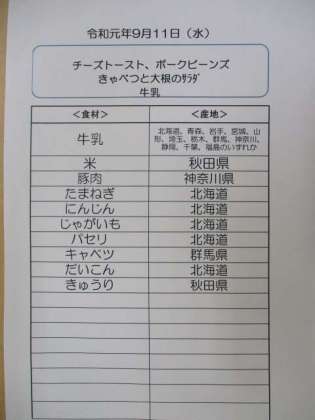 令和元年9月11日（水）
チーズトースト、ポークビーンズ
きゃべつと大根のｻﾗﾀﾞ
牛乳
＜食材＞ ＜産地＞
牛乳 北海道、青森、岩手、宮城、山
形、埼玉、栃木、群馬、神奈川、
静岡、千葉、福島のいずれか
米 秋田県
豚肉 神奈川県
たまねぎ 北海道
にんじん 北海道
じゃがいも 北海道
パセリ 北海道
キャベツ 群馬県
だいこん 北海道
きゅうり 秋田県